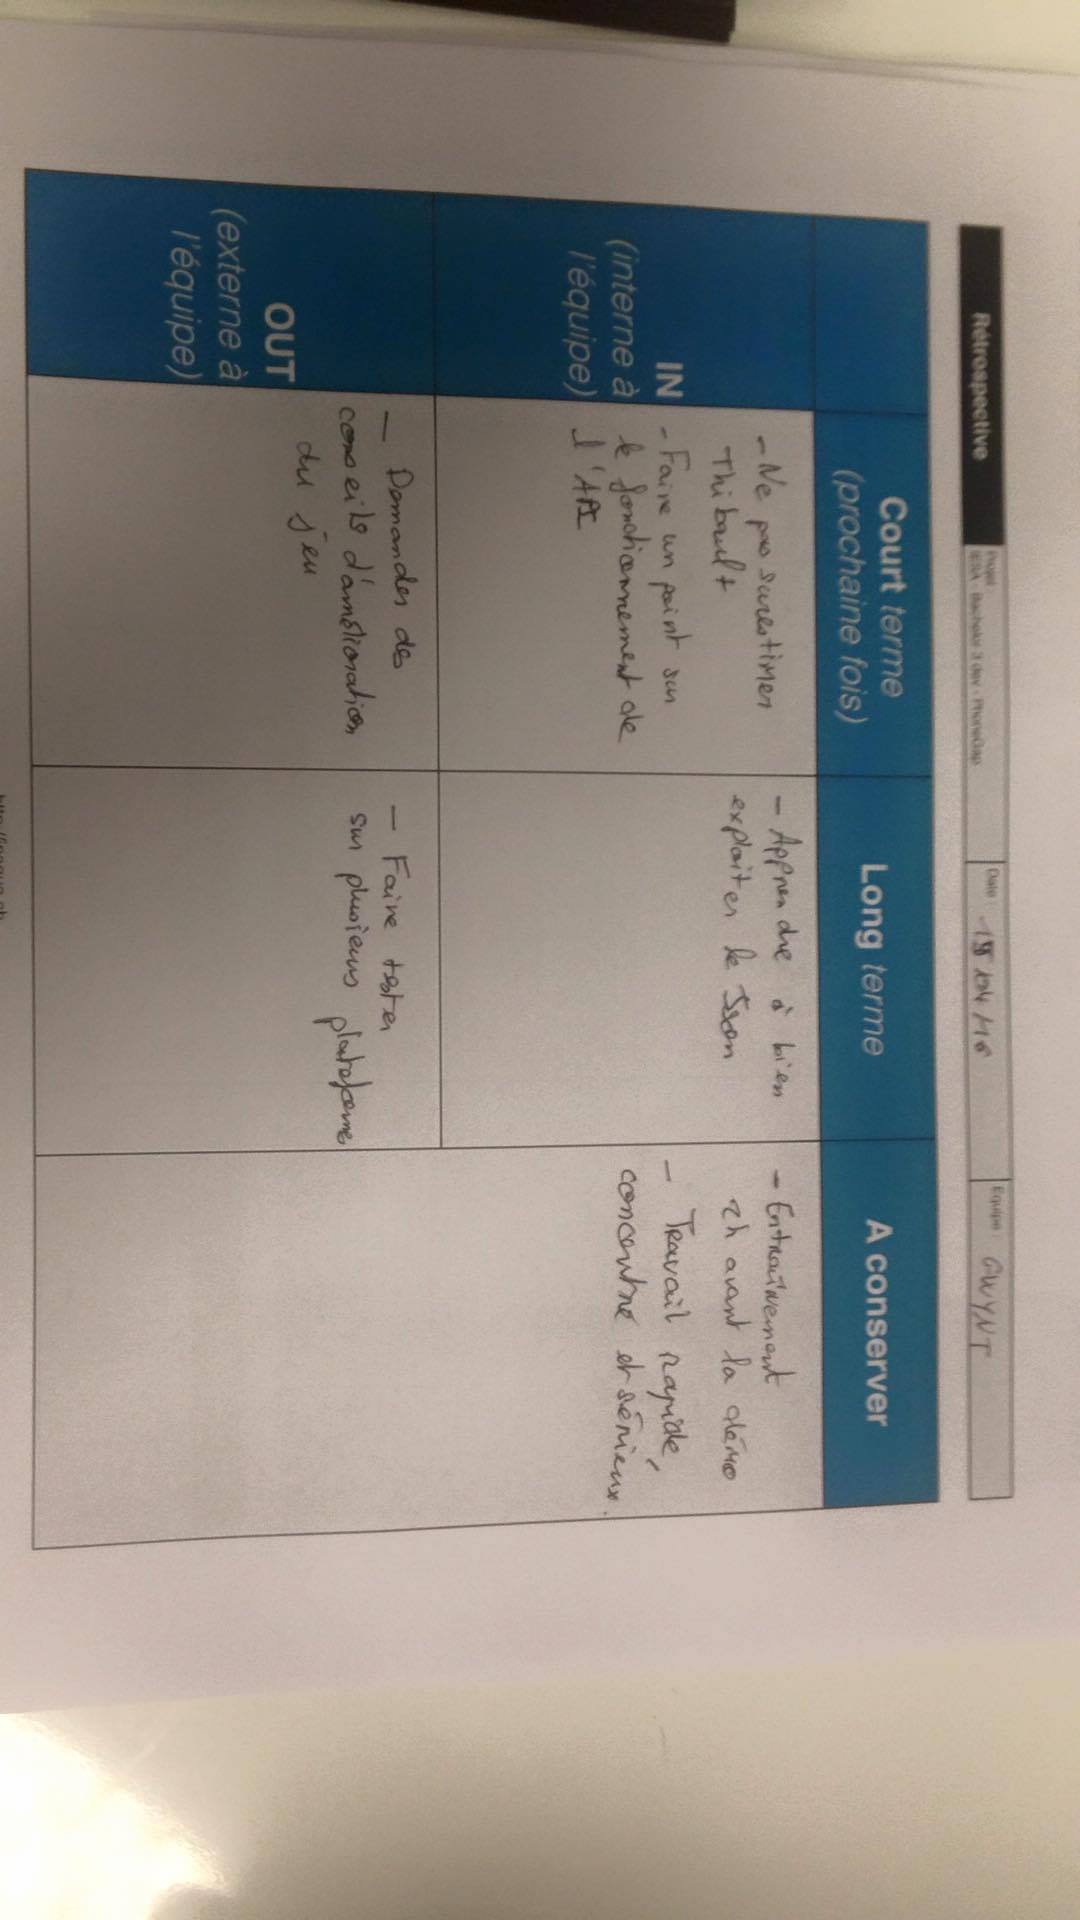 Rétrospective
Projet :
IESA - Bachelor 3 dev - PhoneGap
Date :
/04/16
Equipe :
GWYNT
Court terme
(prochaine fois)
Long terme
A conserver
IN
(interne à
l'équipe)
- Ne pas surestimer
Thibault
- Faire un point sur
le fonctionnement de
l'API
- Apprendre à bien
exploiter le Json
- Entraînement
2h avant la démo
- Travail rapide,
concentré et sérieux.
OUT
(externe à
l'équipe)
- Demander des
conseils d'amélioration
du jeu
- Faire tester
sur plusieurs plateforme